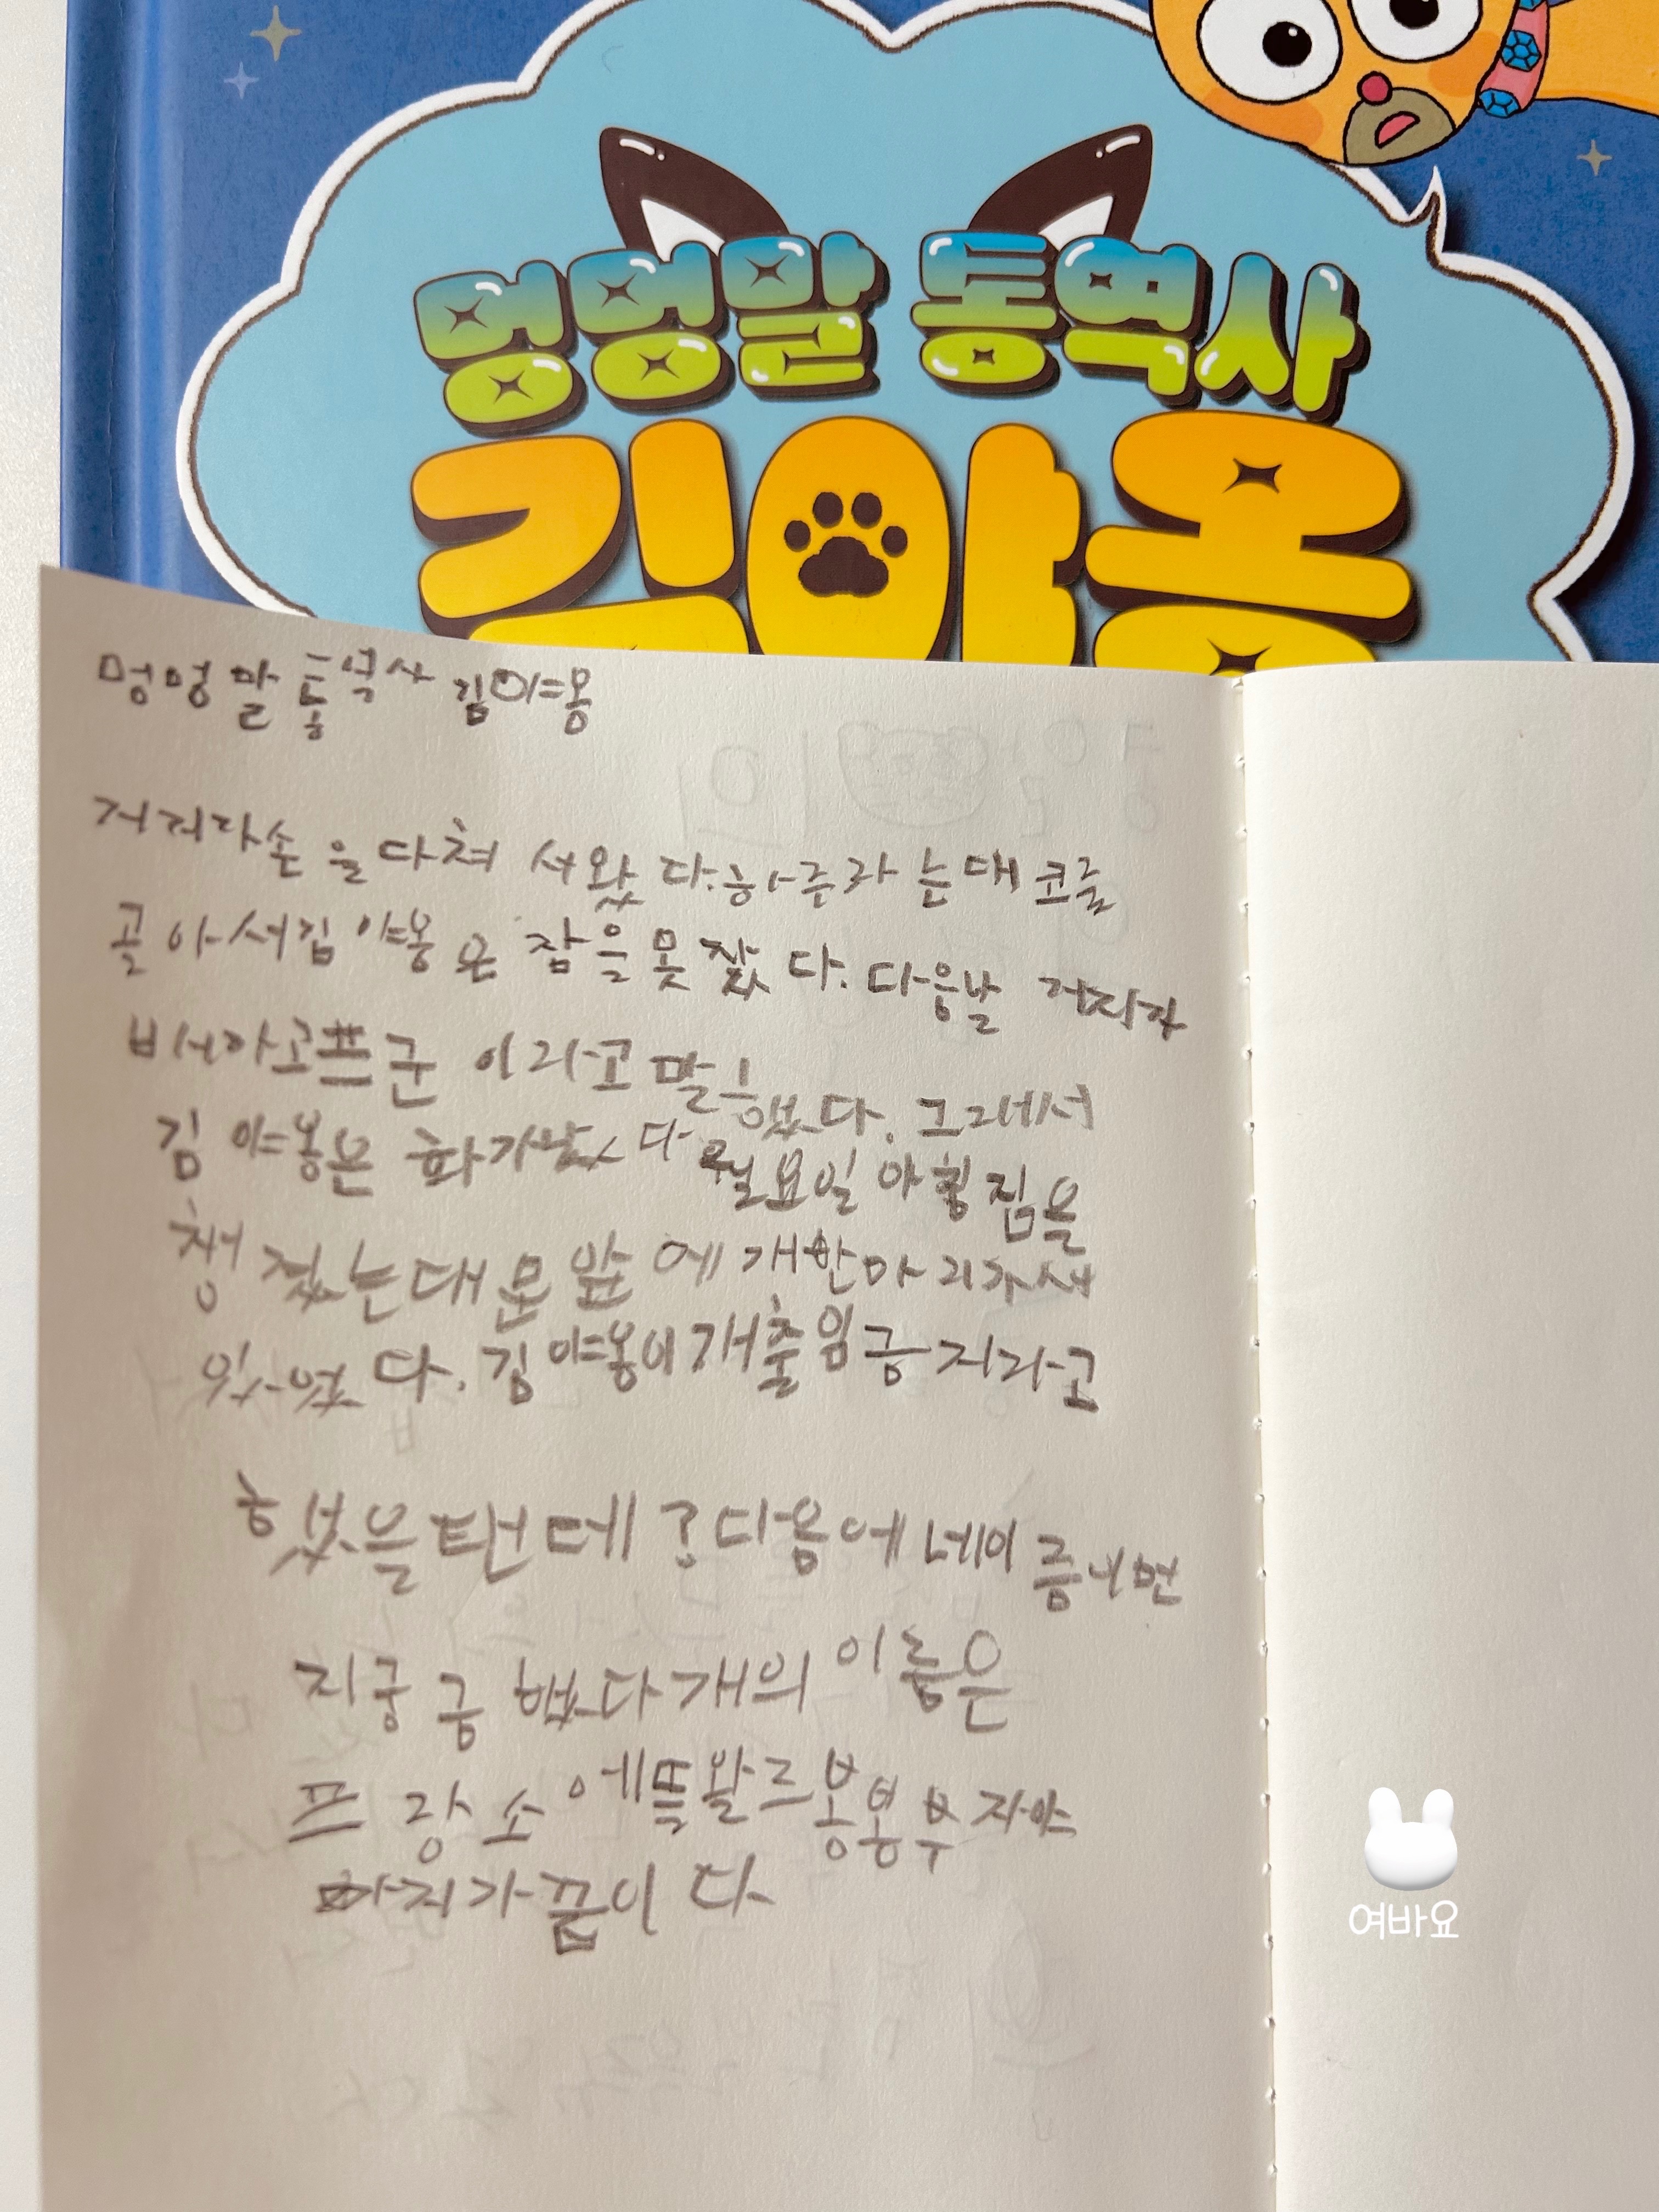 멍멍말 통역사
김야옹
멍멍말 통역사 김야옹
거저라손을다쳐 서왔다.하루라는대 코를
골아서김야옹은 잠을못잤다. 다음날 거지가
배가고픈군 이라고말했다. 그래서
김야옹은 화가났다 월요일 아침 짐을
챙겼는대 문 앞에 개한마리가서
있었다. 김야옹이개출입금지라고
했을탠데?다음에 네이름나면
지궁금했다개의이름은
프랑소에뜨왈르봉봉부자야
까지가끝이다
여바요